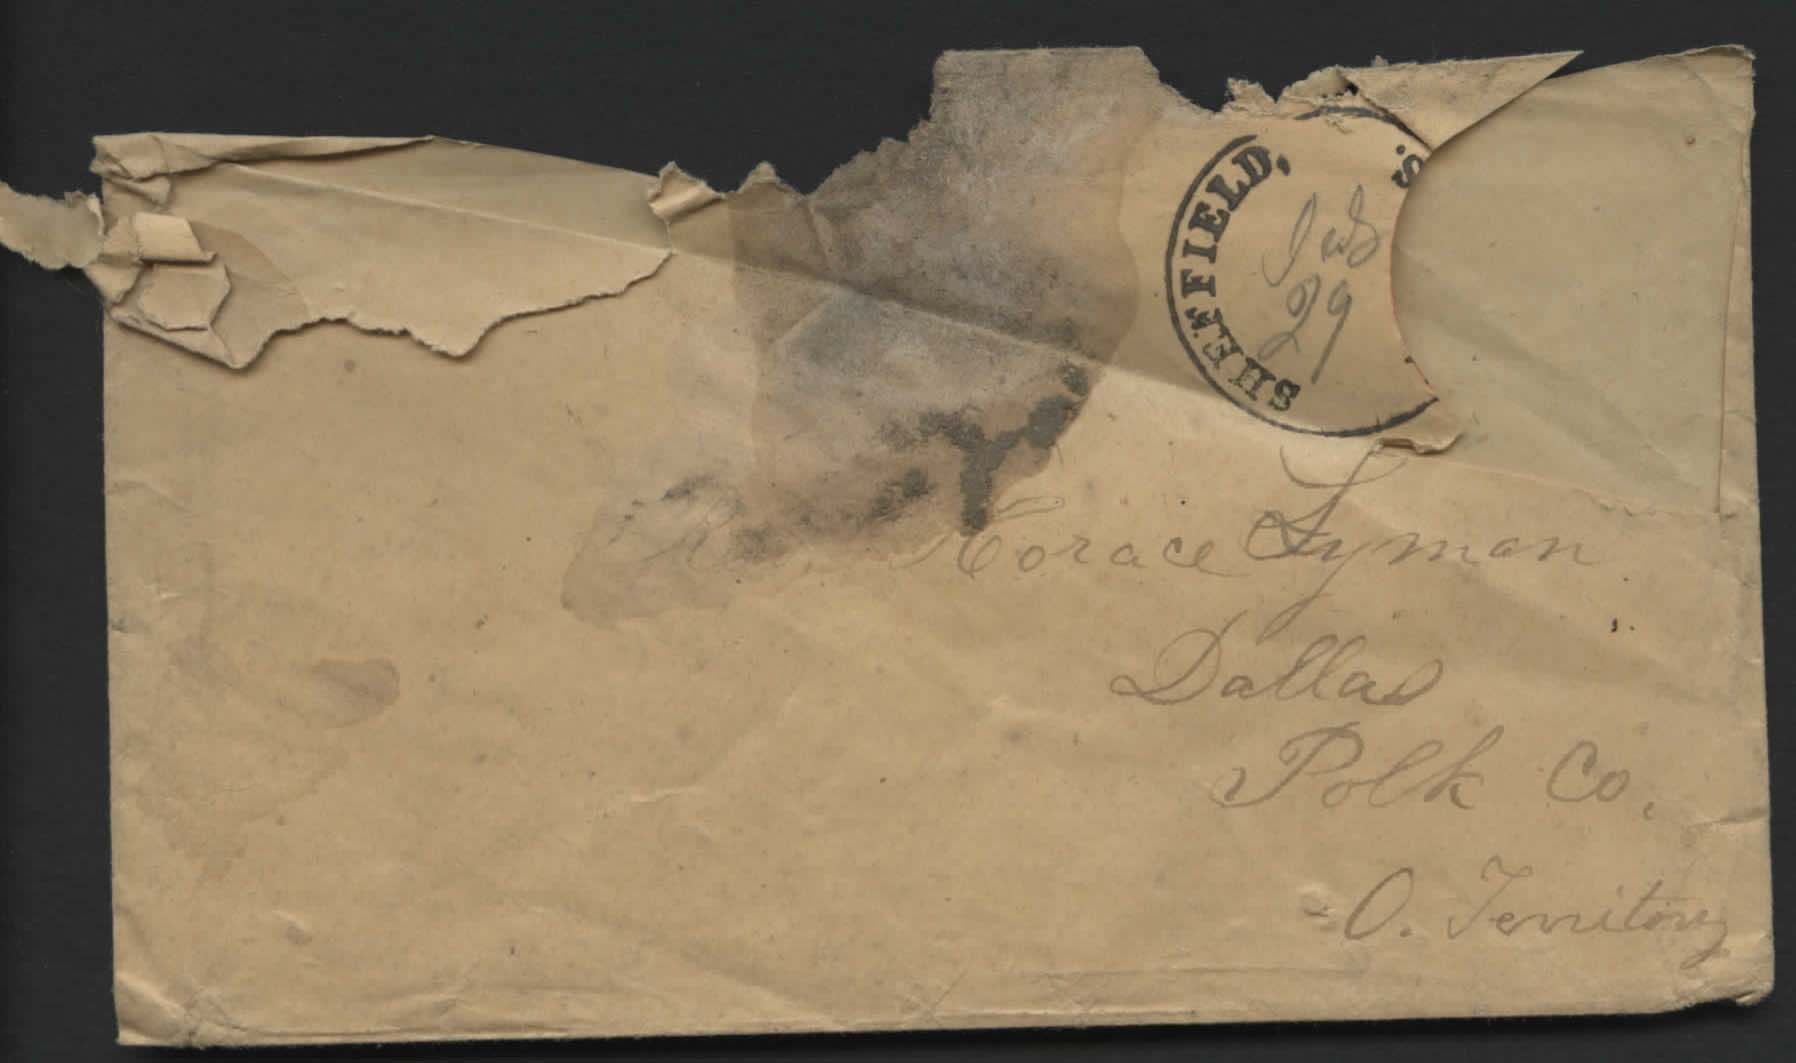 SHEFFIELD, S.
29
Horace Lyman
Dallas
Polk Co.
O. Territory